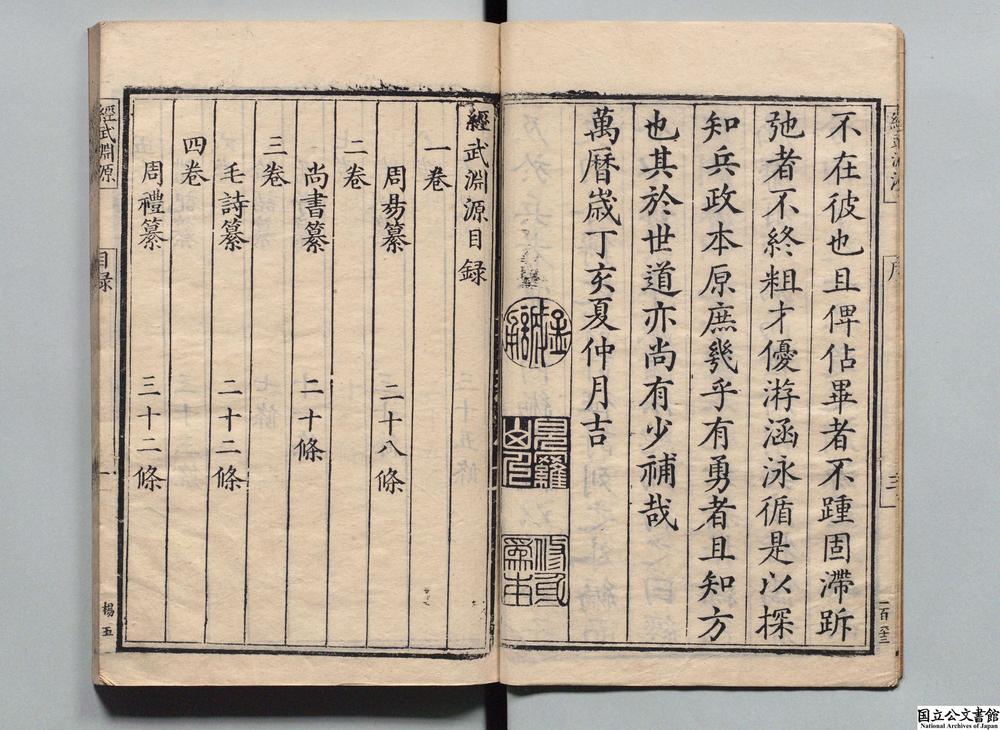 不在彼也且俾佔畢者不踵固滯跅
弛者不終粗才優游涵泳循是以探
知兵政本原庶幾乎有勇者且知方
也其於世道亦尚有少補哉
萬曆嵗丁亥夏仲月吉
經武淵源目録
一卷
周易纂 二十八條
二卷
尚書纂 二十條
三卷
毛詩纂 二十二條
四卷
周禮纂 三十二條
經武淵源
目録
一
楊五
国立公文書館
National Archives of Japan